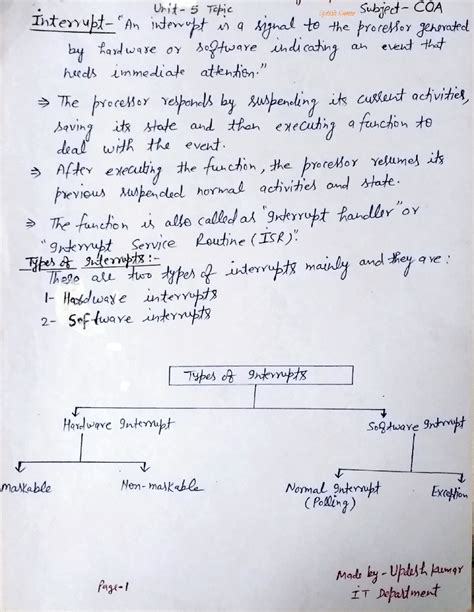 Unit-5 Topic
Updesh Kumar
Subject- COA
Interrupt- "An interrupt is a signal to the processor generated
by hardware or software indicating an event that
needs immediate attention."
⇒ The processor responds by suspending its current activities,
saving its state and then executing a function to
deal with the event.
⇒ After executing the function, the processor resumes its
previous suspended normal activities and state.
⇒ The function is also called as "Interrupt handler" or
"Interrupt Service Routine (ISR)".
Types of Interrupts:-
There are two types of interrupts mainly and they are:
1- Hardware interrupts
2- Software interrupts
Types of Interrupts
Hardware Interrupt
Software Intrrupt
Maskable
Non-maskable
Normal Interrupt
(Polling)
Exception
Made by- Updesh Kumar
IT Department
Page-1